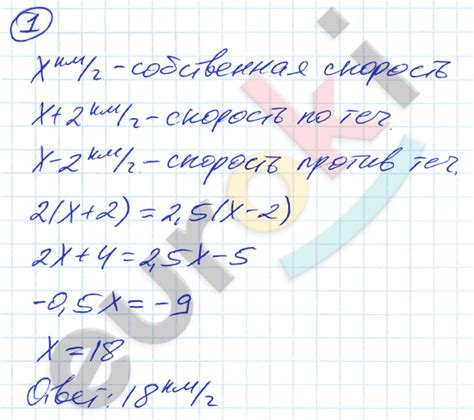 1
x км/г - собственная скорость
x+2 км/г - скорость по теч.
x-2 км/г - скорость против теч.
2(x+2)=2,5(x-2)
2x+4=2,5x-5
-0,5x=-9
x=18
Ответ: 18 км/г
euroki